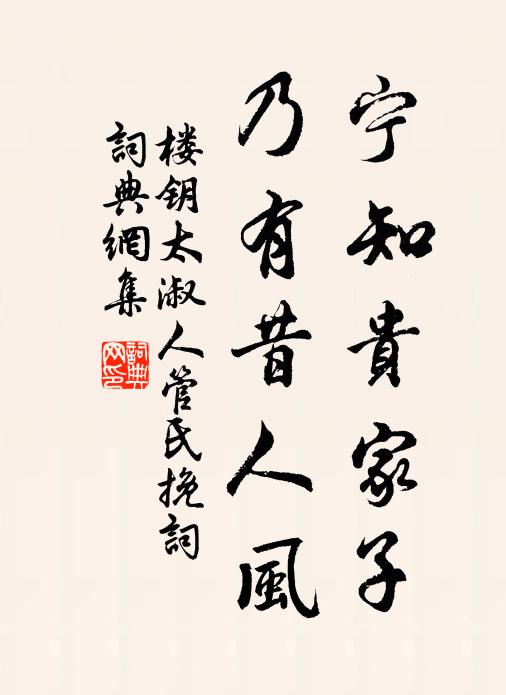 宁知貴家子
乃有昔人風
楼钥太淑人管氏挽詞
詞典網集
詞典网印